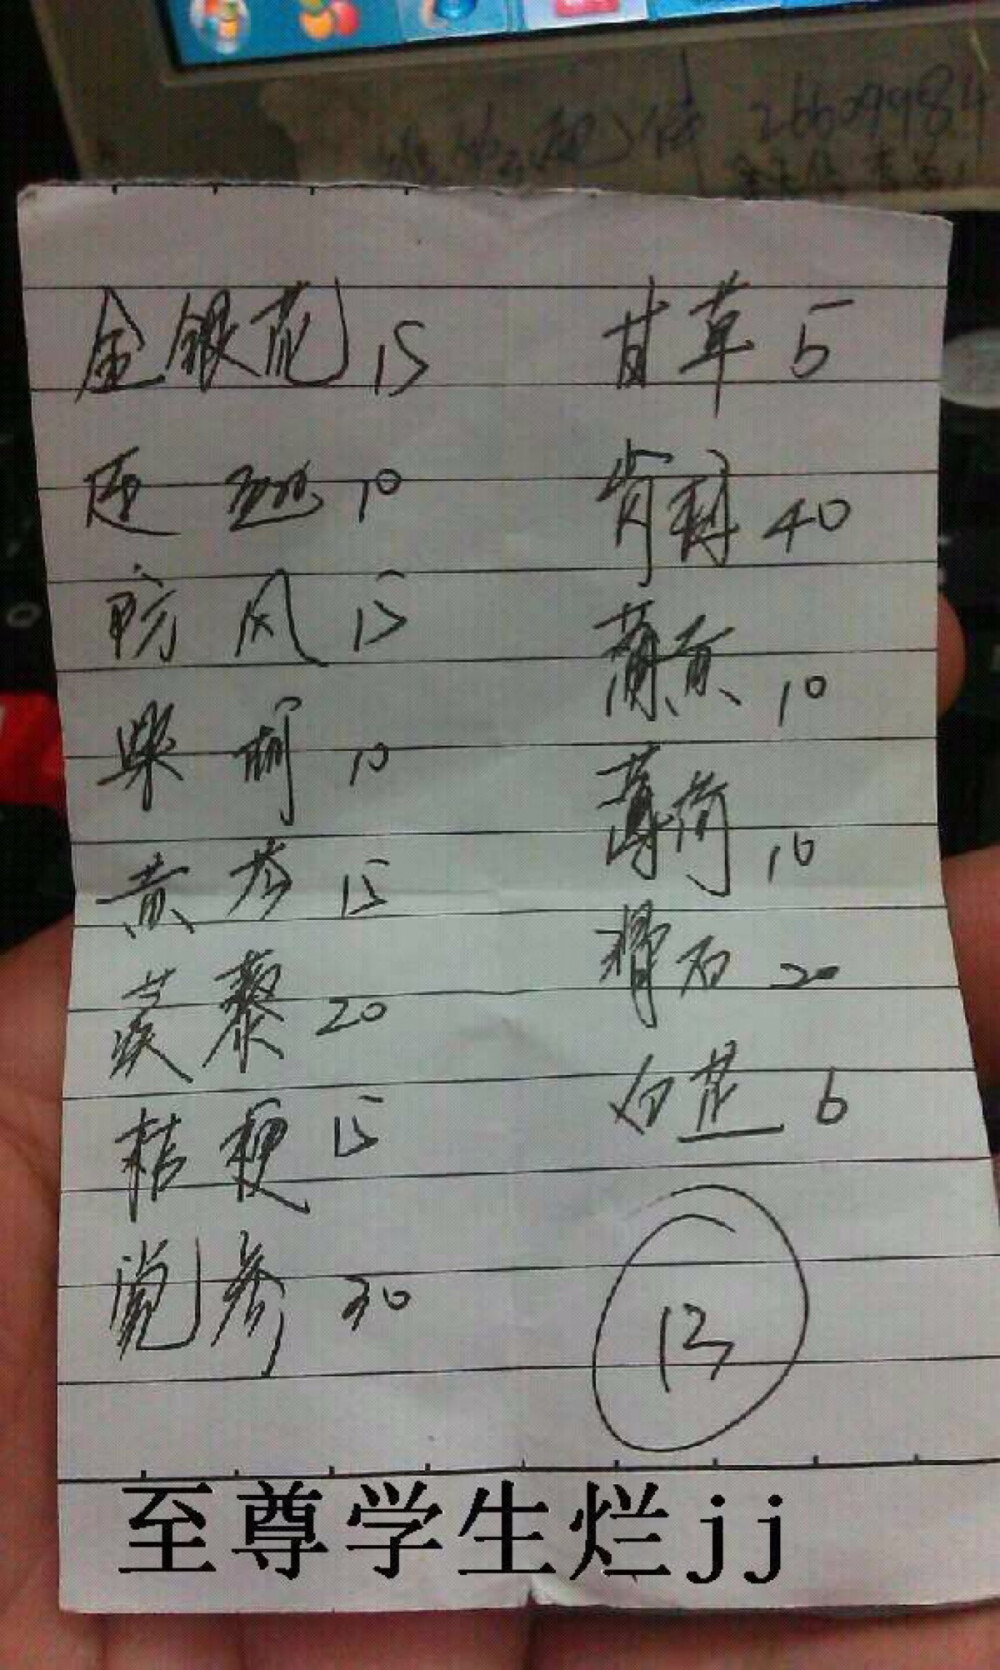 26609984
金银花 15
连翘 10
防风 15
柴胡 10
黄芩 15
蒺藜 20
桔梗 15
党参 20
甘草 5
40
10
薄荷 10
滑石 20
白芷 6
13
至尊学生烂jj